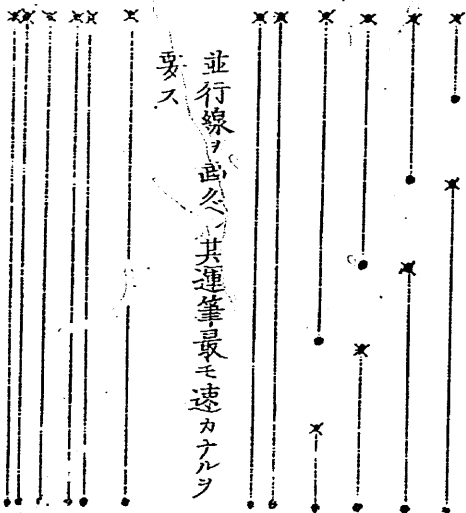 並行線ヲ画クヘシ其運筆最モ速カナルヲ
要ス